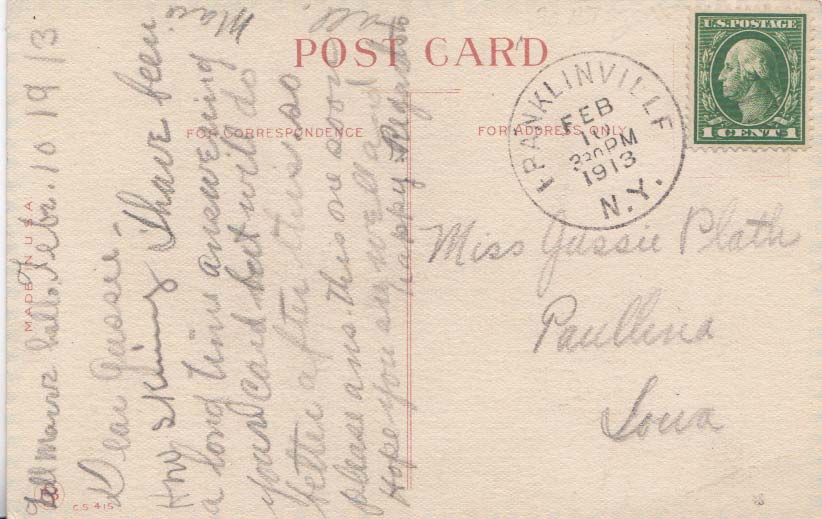 POST CARD
FOR CORRESPONDENCE
FOR ADDRESS ONLY
U.S. POSTAGE
1 CENT 1
FRANKLINVILLE
FEB
10
3 30 PM
1913
N.Y.
Miss Gussie Plath
Paullina
Iowa
Tell hello, Febr. 10 1913
Dear Gussie.
I have been
a long time answering
your card but will do
better after this so
please ans. this one soon
Hope you are well and
happy Regards to
all.
MADE IN U.S.A.
C.S. 415